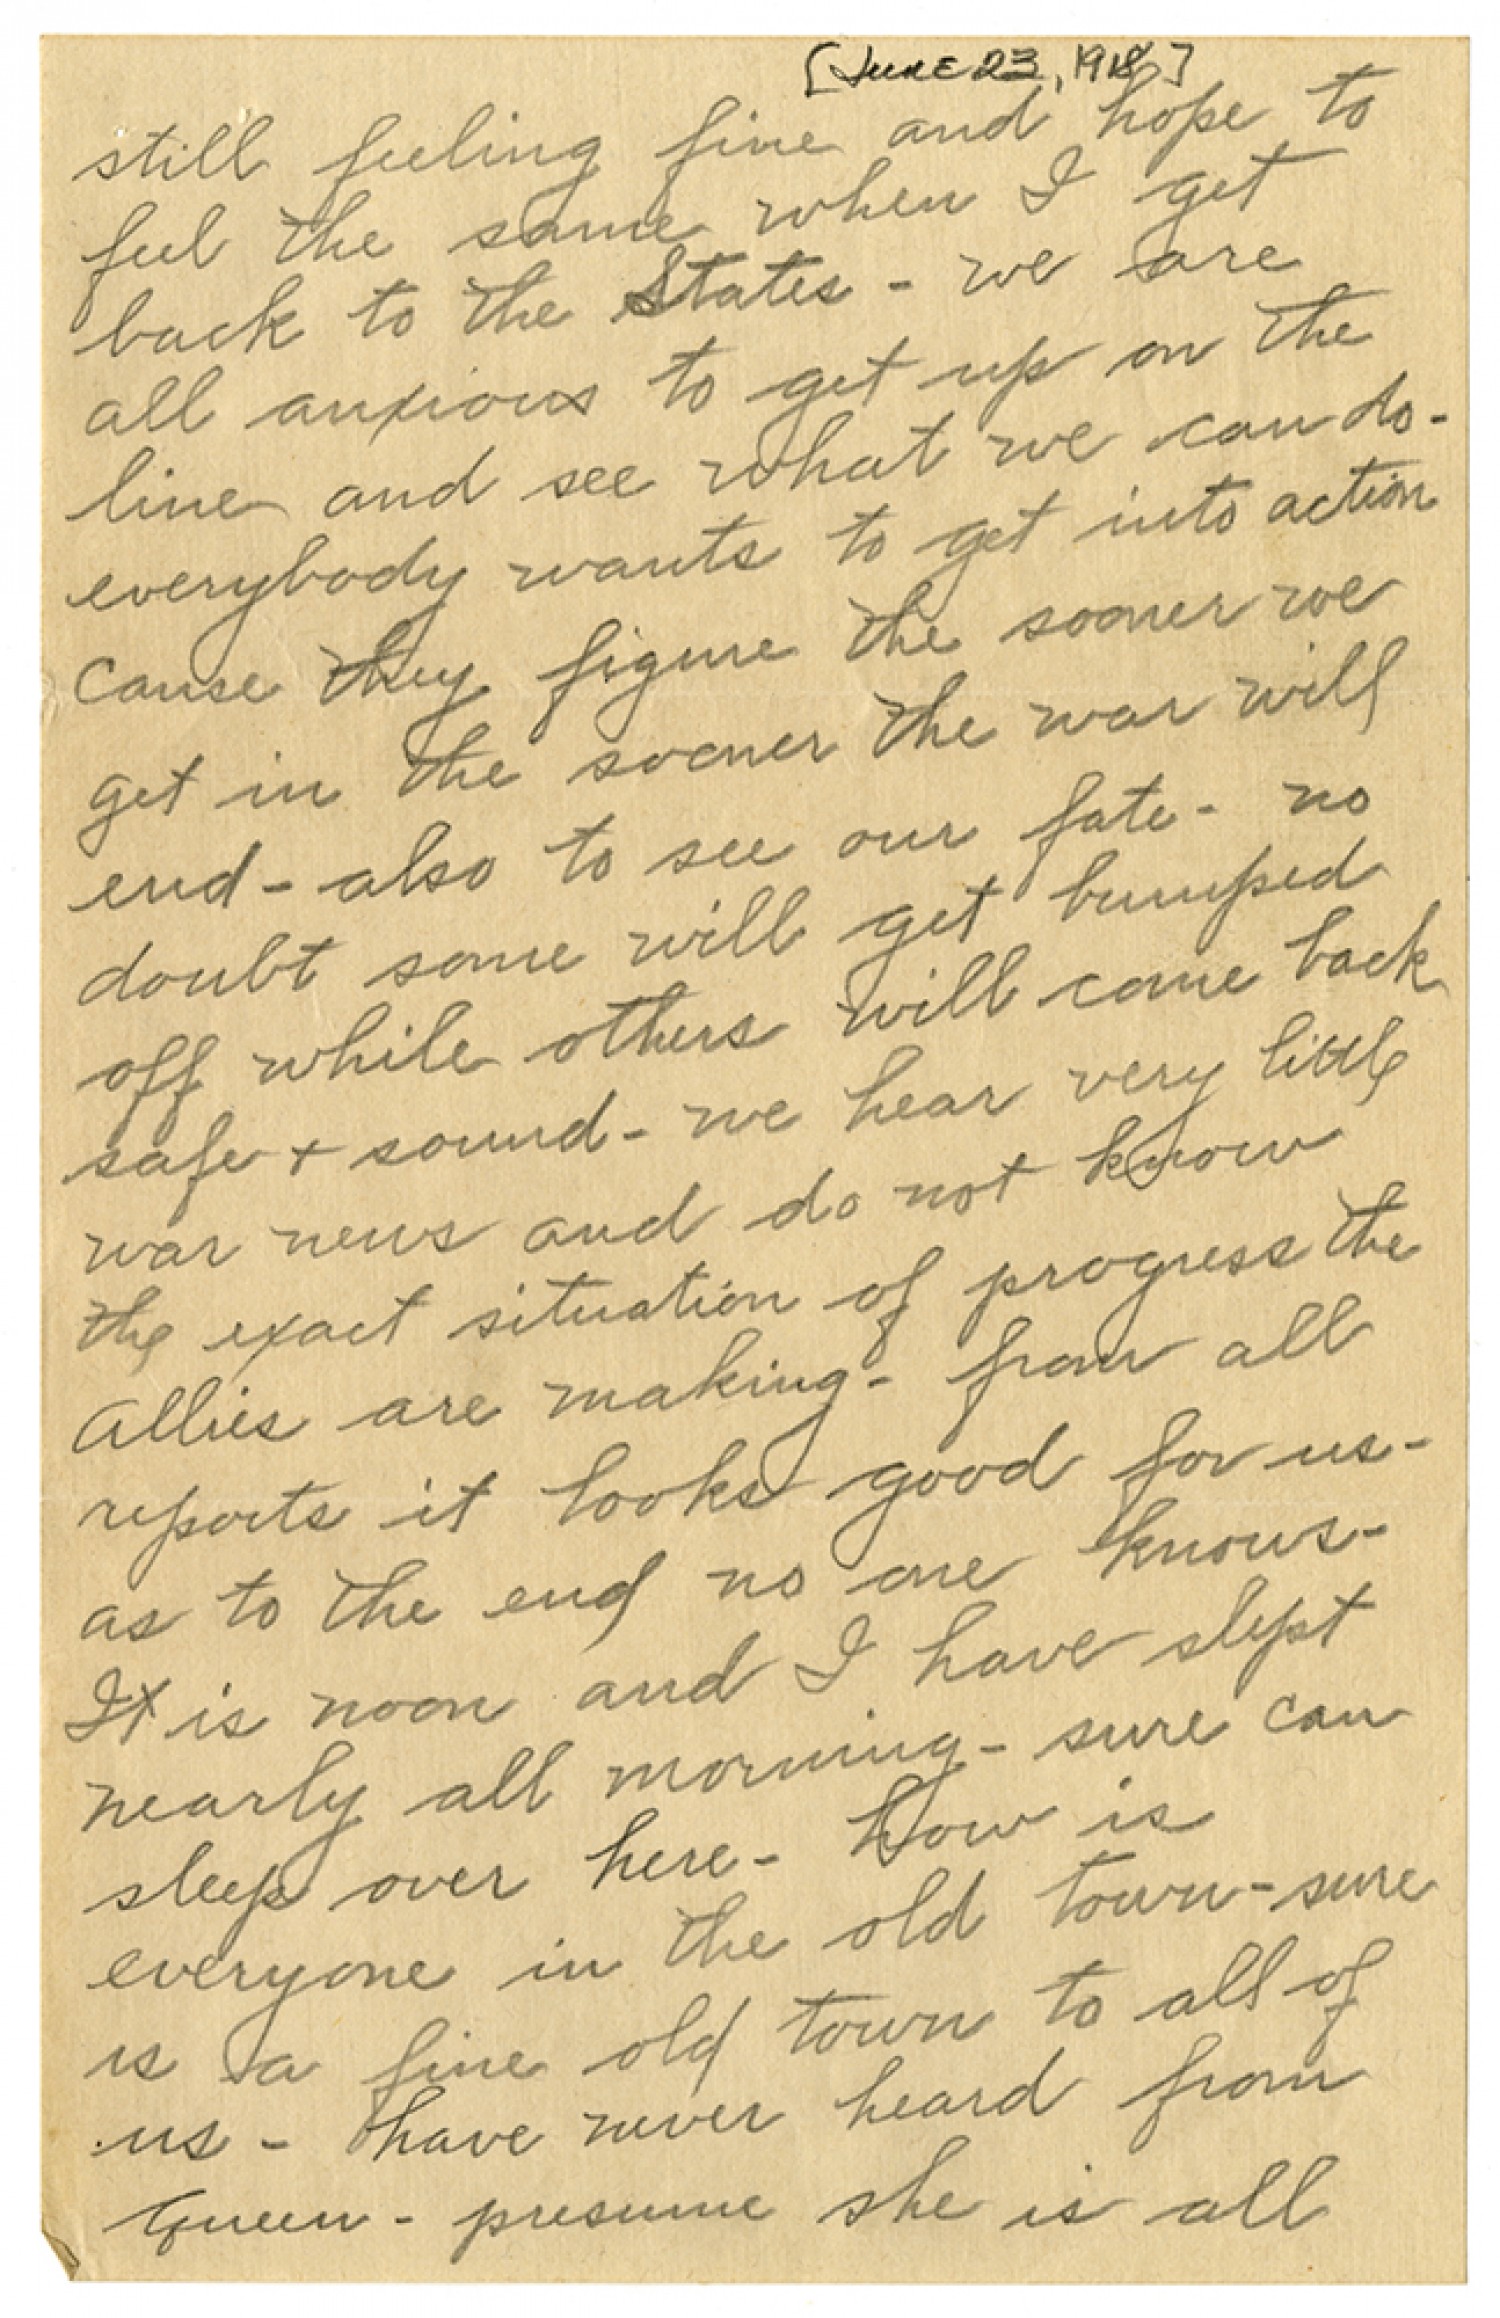 [June 23, 1918]
still feeling fine and hope to
feel the same when I get
back to the States - we are
all anxious to get up on the
line and see what we can do -
everybody wants to get into action
cause they figure the sooner we
get in the sooner the war will
end - also to see our fate - no
doubt some will get bumped
off while others will come back
safe + sound - we hear very little
war news and do not know
the exact situation of progress the
allies are making - from all
reports it looks good for us -
as to the end no one knows -
It is noon and I have slept
nearly all morning - sure can
sleep over here - how is
everyone in the old town - sure
is a fine old town to all of
us - have never heard from
Queen - presume she is all